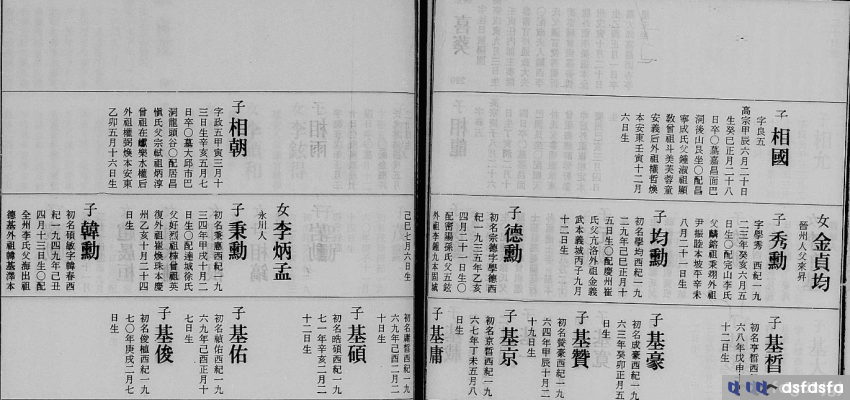 子 相國
字良五
高宗甲辰六月二十日
生癸巳正月二十八
日卒○墓嘉昌面巴
洞後山艮坐○配昌
寧成氏父鍾淑祖顯
敎曾祖斗美芙蓉童
安義後外祖權哲煥
本安東壬寅十二月
六日生
女 金貞均
晉州人父來昇
子 秀勳
字學秀 西紀一九
二三年癸亥六月五
日生○配完山李氏
父麟鎔祖秉翊外祖
尹振陸本坡平辛未
八月二十一日生
子 均勳
初名學均西紀一九
二九年己巳正月十
五日生○配慶州崔
氏父亢洛外祖金義
武本義城丙子九月
十二日生
子 德勳
初名宗德字學德西
紀一九三五年乙亥
四月二十一日生○
配密陽孫氏父五鉉
外祖李鍾九本固城
子 基晳
初名亨晳西紀一九
六八年戊申十
十二日生
子 基豪
初名成豪西紀一九
六三年癸卯正月五
日生
子 基贊
初名贊豪西紀一九
六四年甲辰十月
十九日生
子 基京
初名京晳西紀一九
六七年丁未五月八
日生
子 基庸
子 相朝
字政五甲寅三月十
三日生辛亥五月七
日卒○墓大邱市巴
洞龍頭谷○配居昌
愼氏父宗軾祖炳淳
曾祖在 樂水權后
外祖權弼煥本安東
乙卯五月十六日生
己巳七月六日生
女 李炳孟
永川人
子 秉勳
初名秉憲西紀一九
三四年甲戌十月二
日生○配達城徐氏
父好烈祖 曾祖英
復外祖崔煥珠本慶
州乙亥十月二十四
日生
子 韓勳
初名碩敏字韓春西
紀一九四九年己丑
四月十三日生○配
全州李氏父海出祖
德基外祖韓基澤本
初名庸晳西紀一九
六九年己酉二月二
十日生
子 基碩
初名晧碩西紀一九
七一年辛亥二月二
十二日生
子 基佑
初名禎佑西紀一九
六九年己酉正月十
七日生
子 基俊
初名俊植西紀一九
七〇年庚戌二月七
日生
dsfdsfa